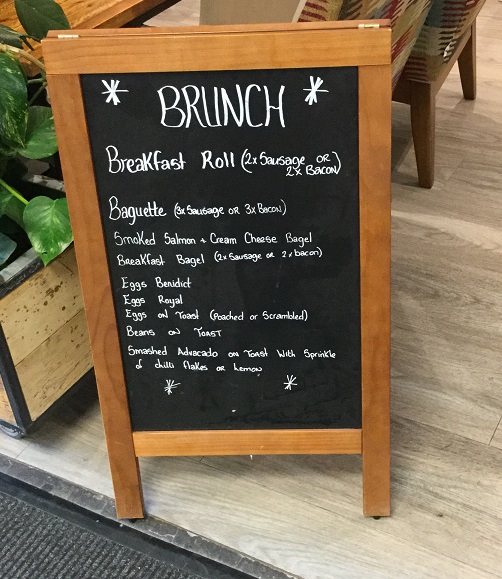 BRUNCH
Breakfast Roll (2x Sausage OR
2x Bacon)
Baguette (3x Sausage OR 3x Bacon)
Smoked Salmon + Cream Cheese Bagel
Breakfast Bagel (2x Sausage or 2x bacon)
Eggs Benidict
Eggs Royal
Eggs on Toast (Poached or Scrambled)
Beans on Toast
Smashed Advacado on Toast With Sprinkle
of chilli flakes or Lemon